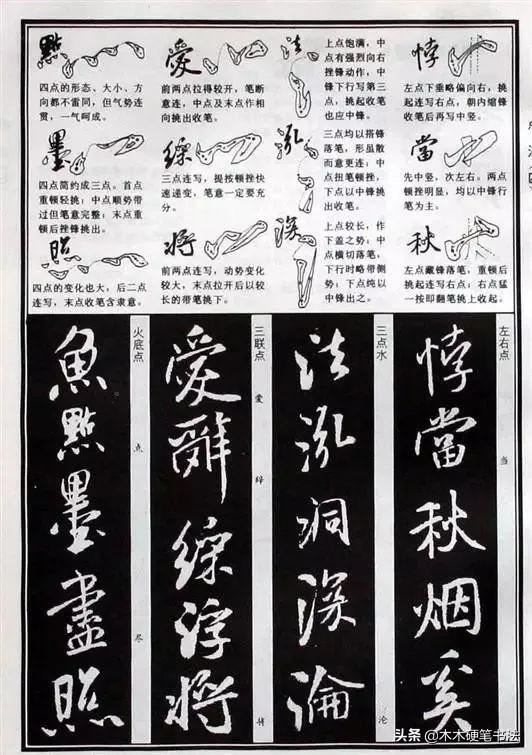 悖
左点下垂略偏向右，挑
起连写右点，朝内缩锋
收笔后再写中竖。
當
先中竖，次左右。两点
顿挫明显，均以中锋行
笔为主。
秋
左点藏锋落笔，重顿后
挑起连写右点；右点猛
一按即翻笔挑上收起。
法
上点饱满，中
点有强烈向右
挫锋动作，中
锋下行写第三
点，挑起收笔
也应中锋。
泓
三点均以搭锋
落笔，形虽散
而意更连；中
点扭笔顿挫，
下点以中锋挑
出收笔。
深
上点较长，作
下盖之势；中
点横切落笔，
下行时略带侧
势；下点纯以
中锋出之。
愛
前两点拉得较开，笔断
意连，中点及末点作相
向挑出收笔。
綵
三点连写，提按顿挫快
速递变，笔意一定要充
分。
將
前两点连写，动势变化
较大，末点拉开后以较
长的带笔挑下。
點
四点的形态、大小、方
向都不雷同，但气势连
贯，一气呵成。
墨
四点简约成三点。首点
重顿轻挑；中点顺势带
过但笔意完整；末点重
顿后挫锋挑出。
照
四点的变化也大，后二点
连写，末点收笔含隶意。
左右点
当
悖當秋烟奚
三点水
沦
法泓洞深淪
三联点
爱
辞
将
愛辭綵浮將
火底点
点
尽
魚點墨盡照
头条 @木木硬笔书法